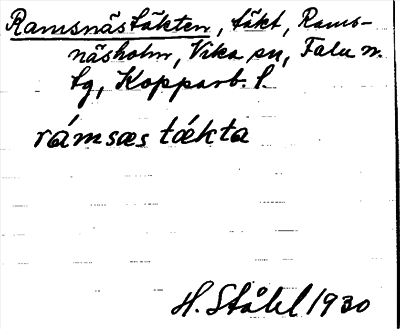 Ramsnästäkten, täkt, Rams-
näsholm, Vika sn, Falu n.
tg, Kopparb. l.
rámsæs tǽkta
H. Ståhl 1930